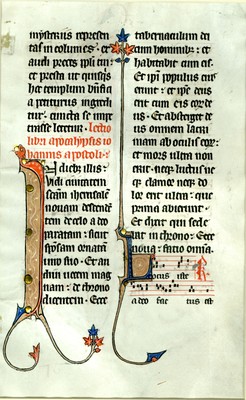 mysteriis represen
tas incolumes : et
audi preces ppli tui :
et presta ut quisqs
hoc templum bnficia
petiturus ingredi
tur : cuncta se impe
trasse letetur . Lectio
libri apocalypsis io
hannis apostoli .
In dieb illis :
Vidi civitatem
scam iherusale
novam descende
tem de celo a deo
paratam : sicut
sposam ornatam
viro suo . Et au
divi vocem mag
nam : de throno
dicentem . Ecce
tabernaculum dei
cum hominib : et
habitabit cum eis .
Et ipi populus eius
erunt : et ipse deus
erit cum eis eor de
us . Et absterget de
us omnem lacri
mam ab oculis eor :
et mors ultra non
erit . neq luctus ne
q clamor neq do
lor erit ultra : que
prima abierunt .
Et dixit qui sede
bat in throno : Ecce
nova : facio omnia .
Locus iste
a deo fac tus est